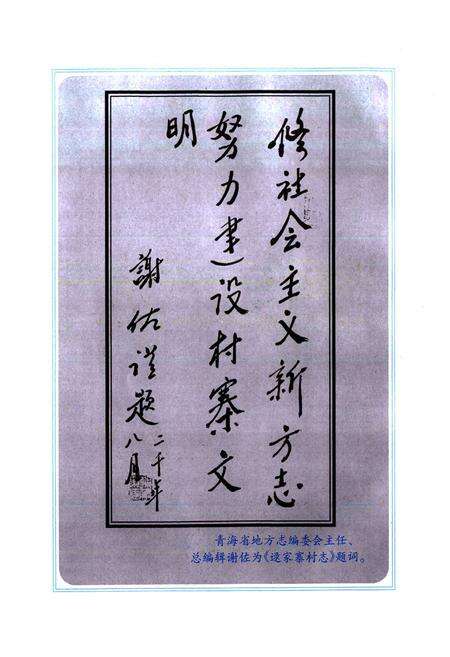 修社会主义新方志
努力建设村寨文
明
謝佐谨题
二千年
八月
青海省地方志编委会主任、
总编辑谢佐为《逯家寨村志》题词。